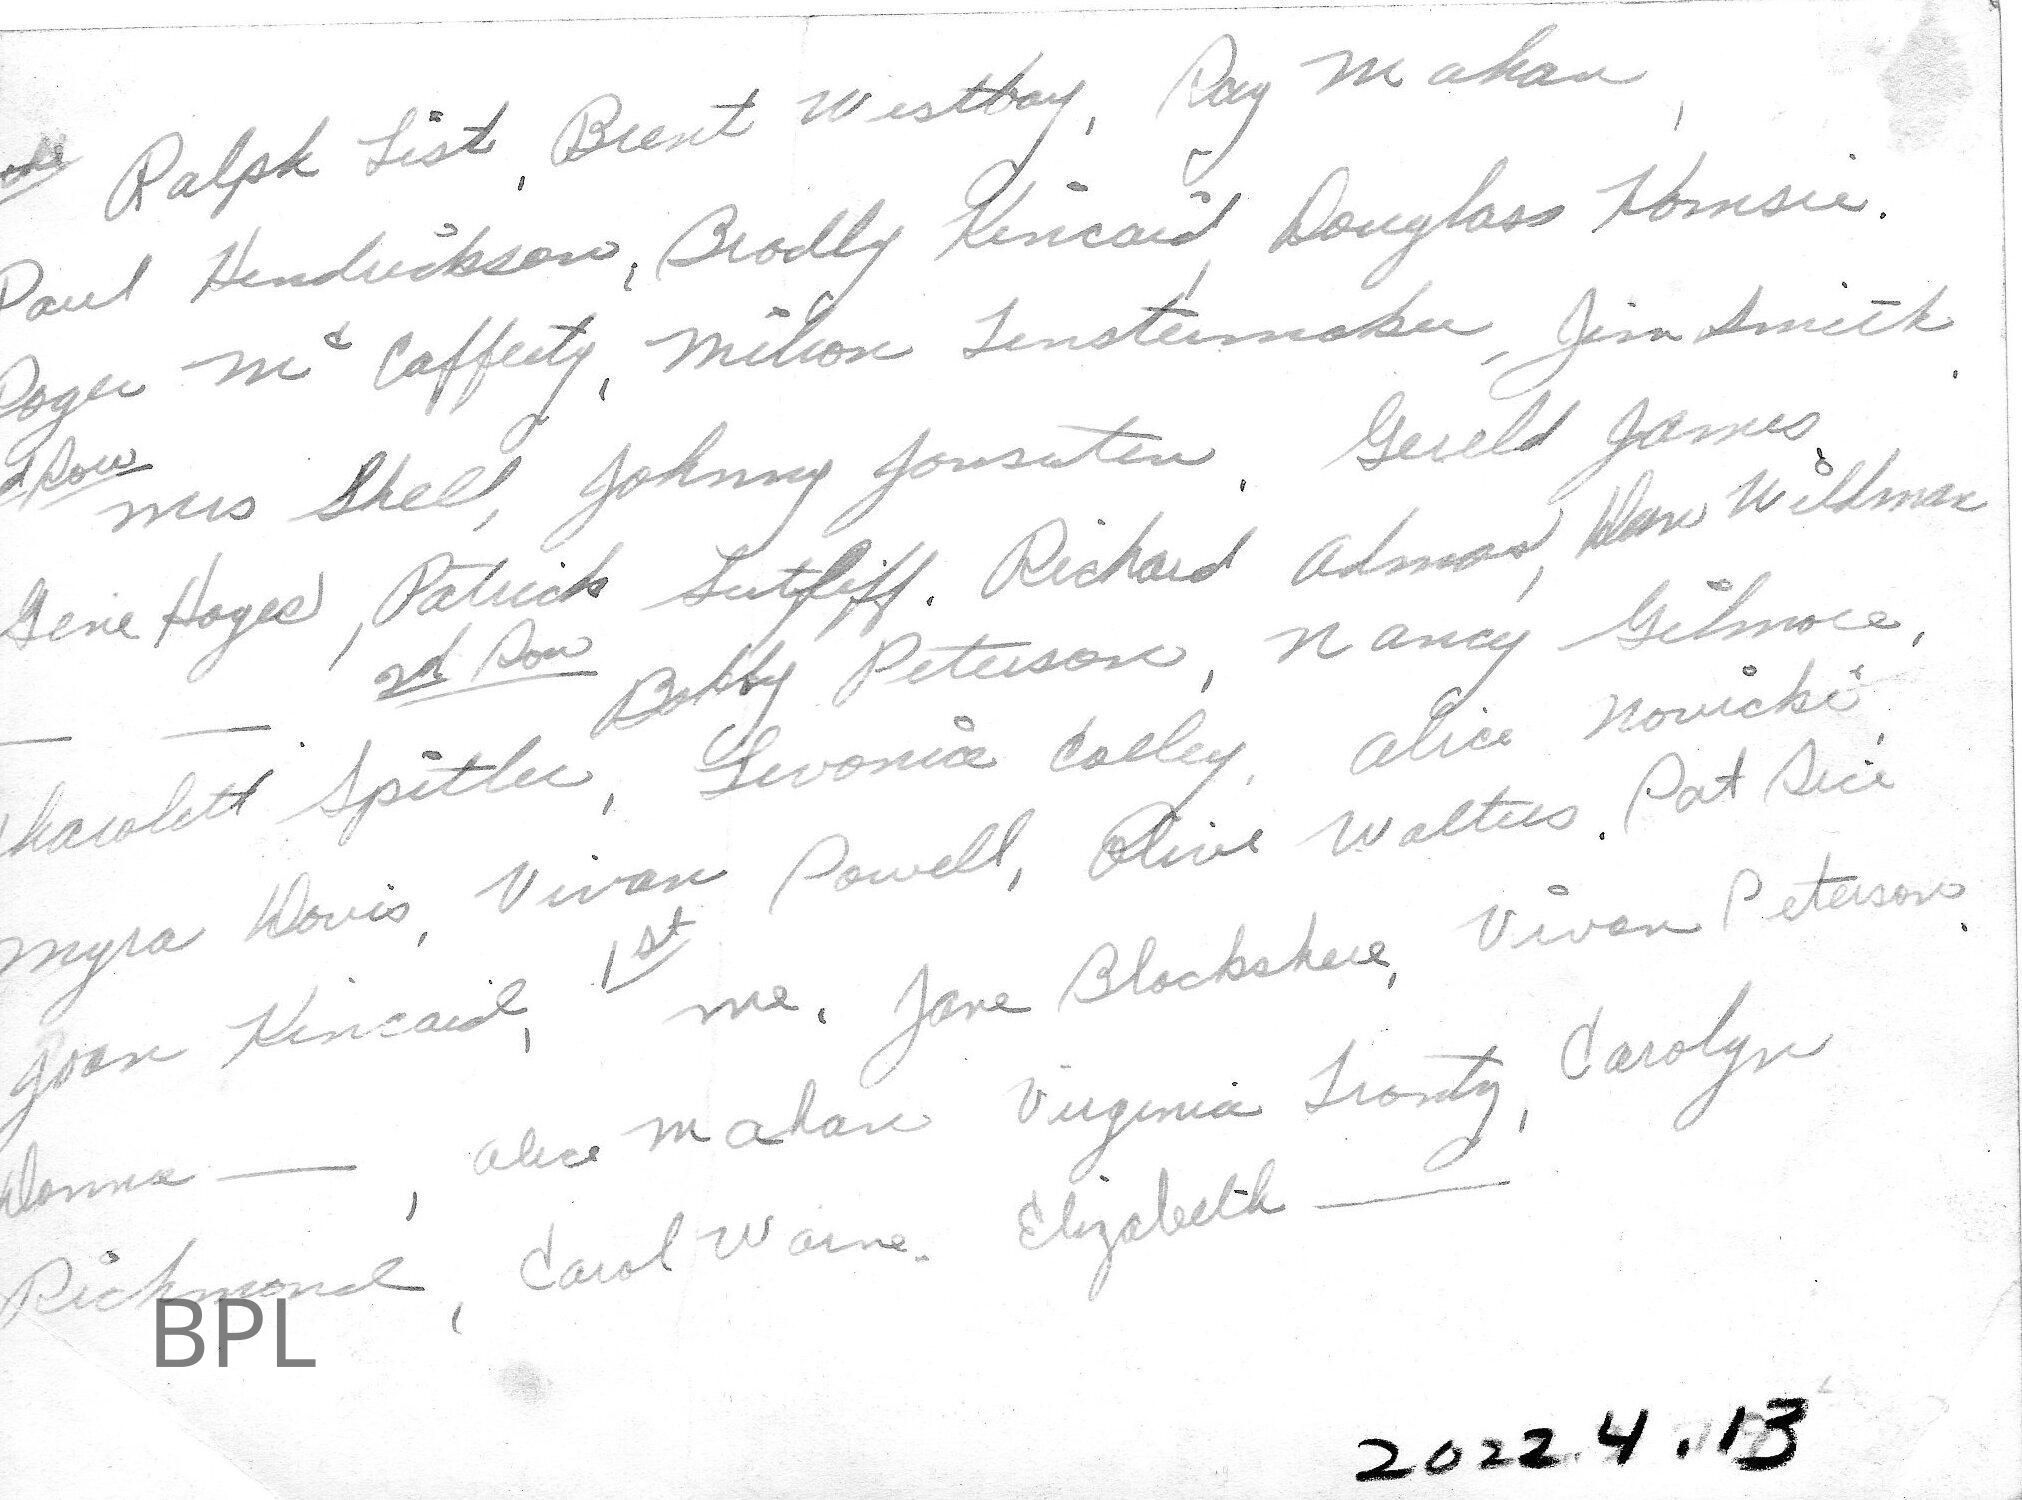 Ralph List, Brent Westbay, Ray Mahan,
Paul Hendrickson, Bradly Kincaid, Douglass Komsie.
Roger Mc Cafferty, Milton Fenstermaker, Jim Smith.
d Row Mrs Shell, Johnny Gerald James,
Gene Hayes, Patrick Sutliff. Richard Admas, Dan Wildman
2d Row Bobby Peterson, Nancy Gilmore,
Charolett Spitler, Levonia Colley, Alice Novicki,
Myra Davis, Vivan Powell, Olive Walters. Pat Sice
Joan Kincaid, 1st me. Jane Blackshere, Vivan Peterson.
Donna —, Alice Mahan Virginia Carolyn
Richmond, Carol Warne. Elizabeth —
BPL
2022.4.13